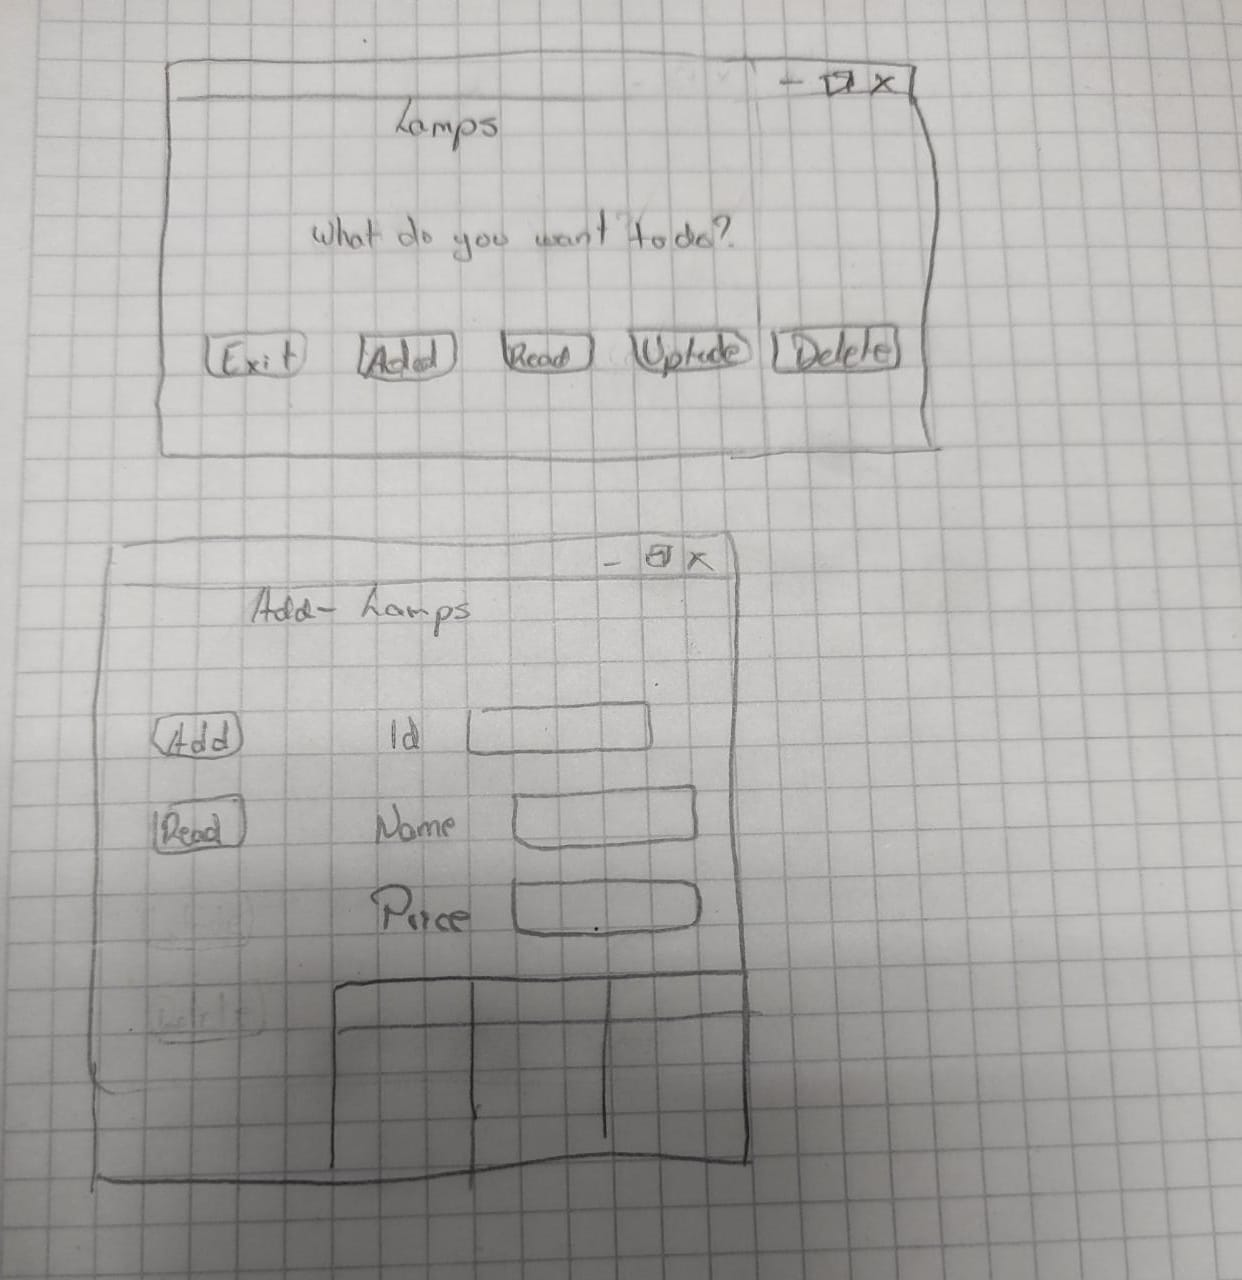 Lamps
What do you want to do?
Exit Added Read Uptude Delete
Add- Lamps
Add Id
Read Name
Price